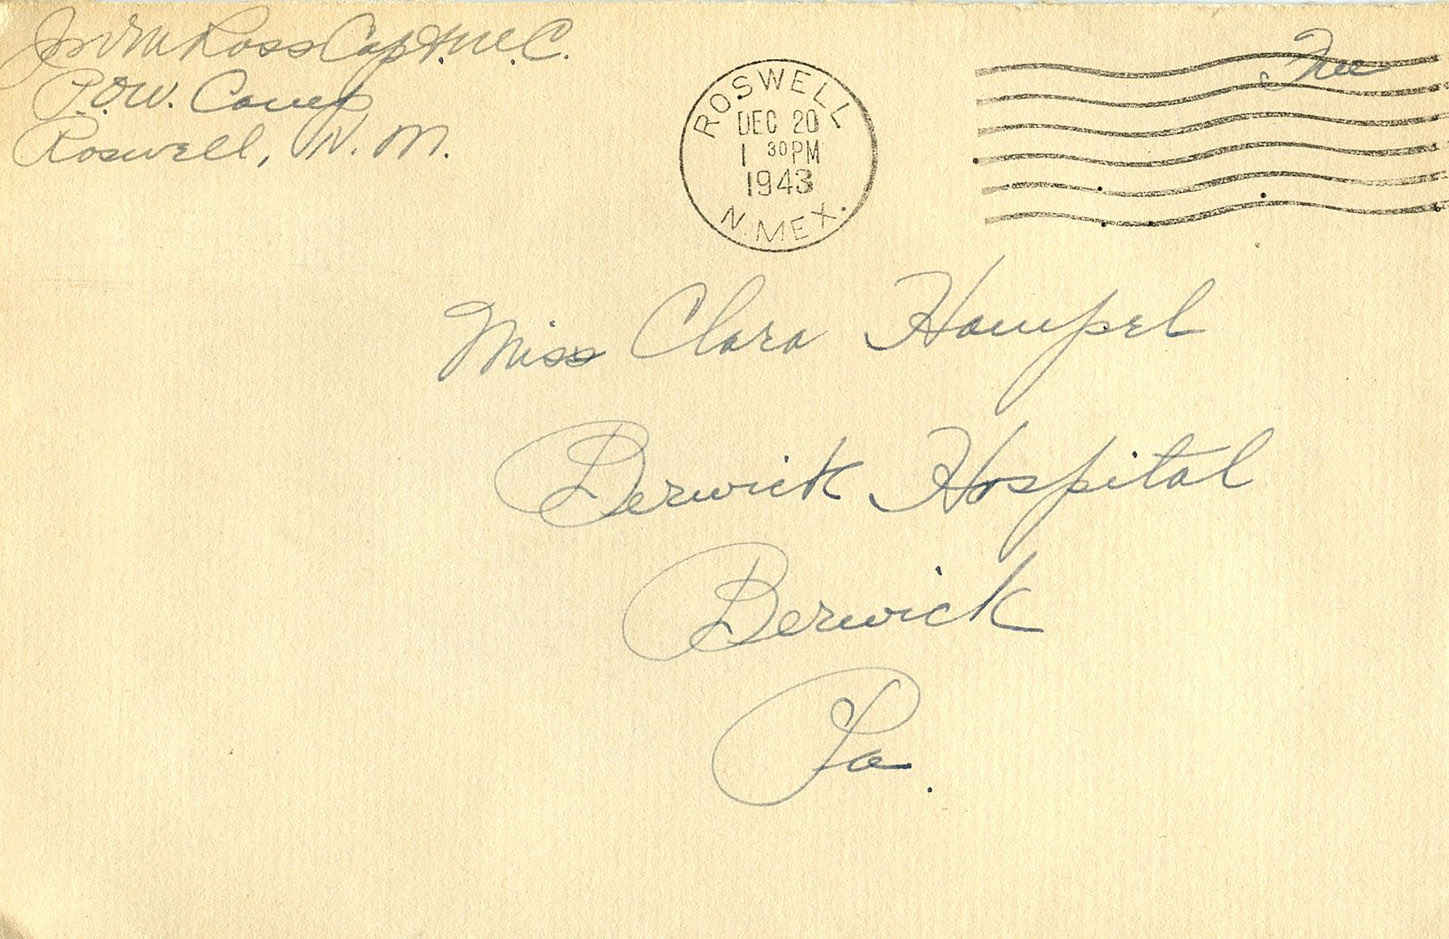 Ross Capt. M.C.
P.O.W. Camp
Roswell, N. M.
ROSWELL
DEC 20
1 30 PM
1943
N. MEX.
Free
Miss Clara Hampel
Berwick Hospital
Berwick
Pa.